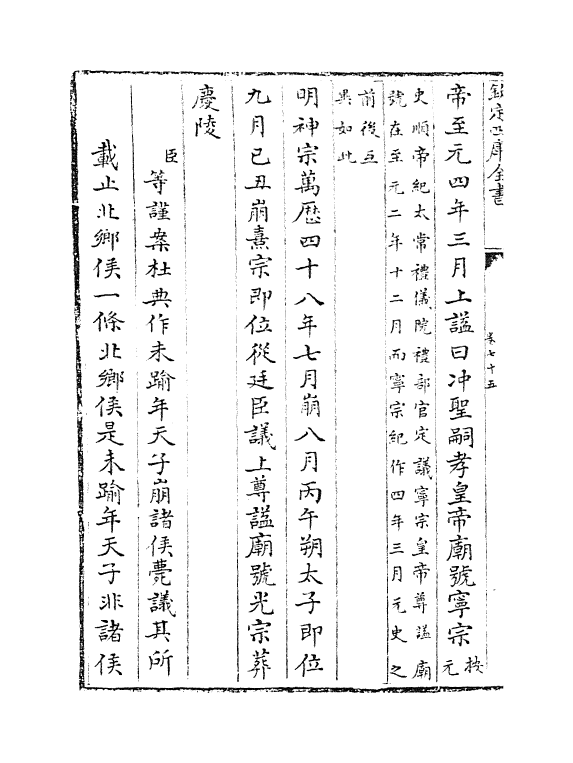 欽定四庫全書
卷七十五
帝至元四年三月上謚曰冲聖嗣孝皇帝廟號寧宗按元
史順帝紀太常禮儀院禮部官定議寧宗皇帝尊謚廟
號在至元二年十二月而寧宗紀作四年三月元史之
前後互
異如此
明神宗萬厯四十八年七月崩八月丙午朔太子即位
九月己丑崩熹宗即位從廷臣議上尊謚廟號光宗葬
慶陵
臣等謹案杜典作未踰年天子崩諸侯薨議其所
載止北鄉侯一條北鄉侯是未踰年天子非諸侯